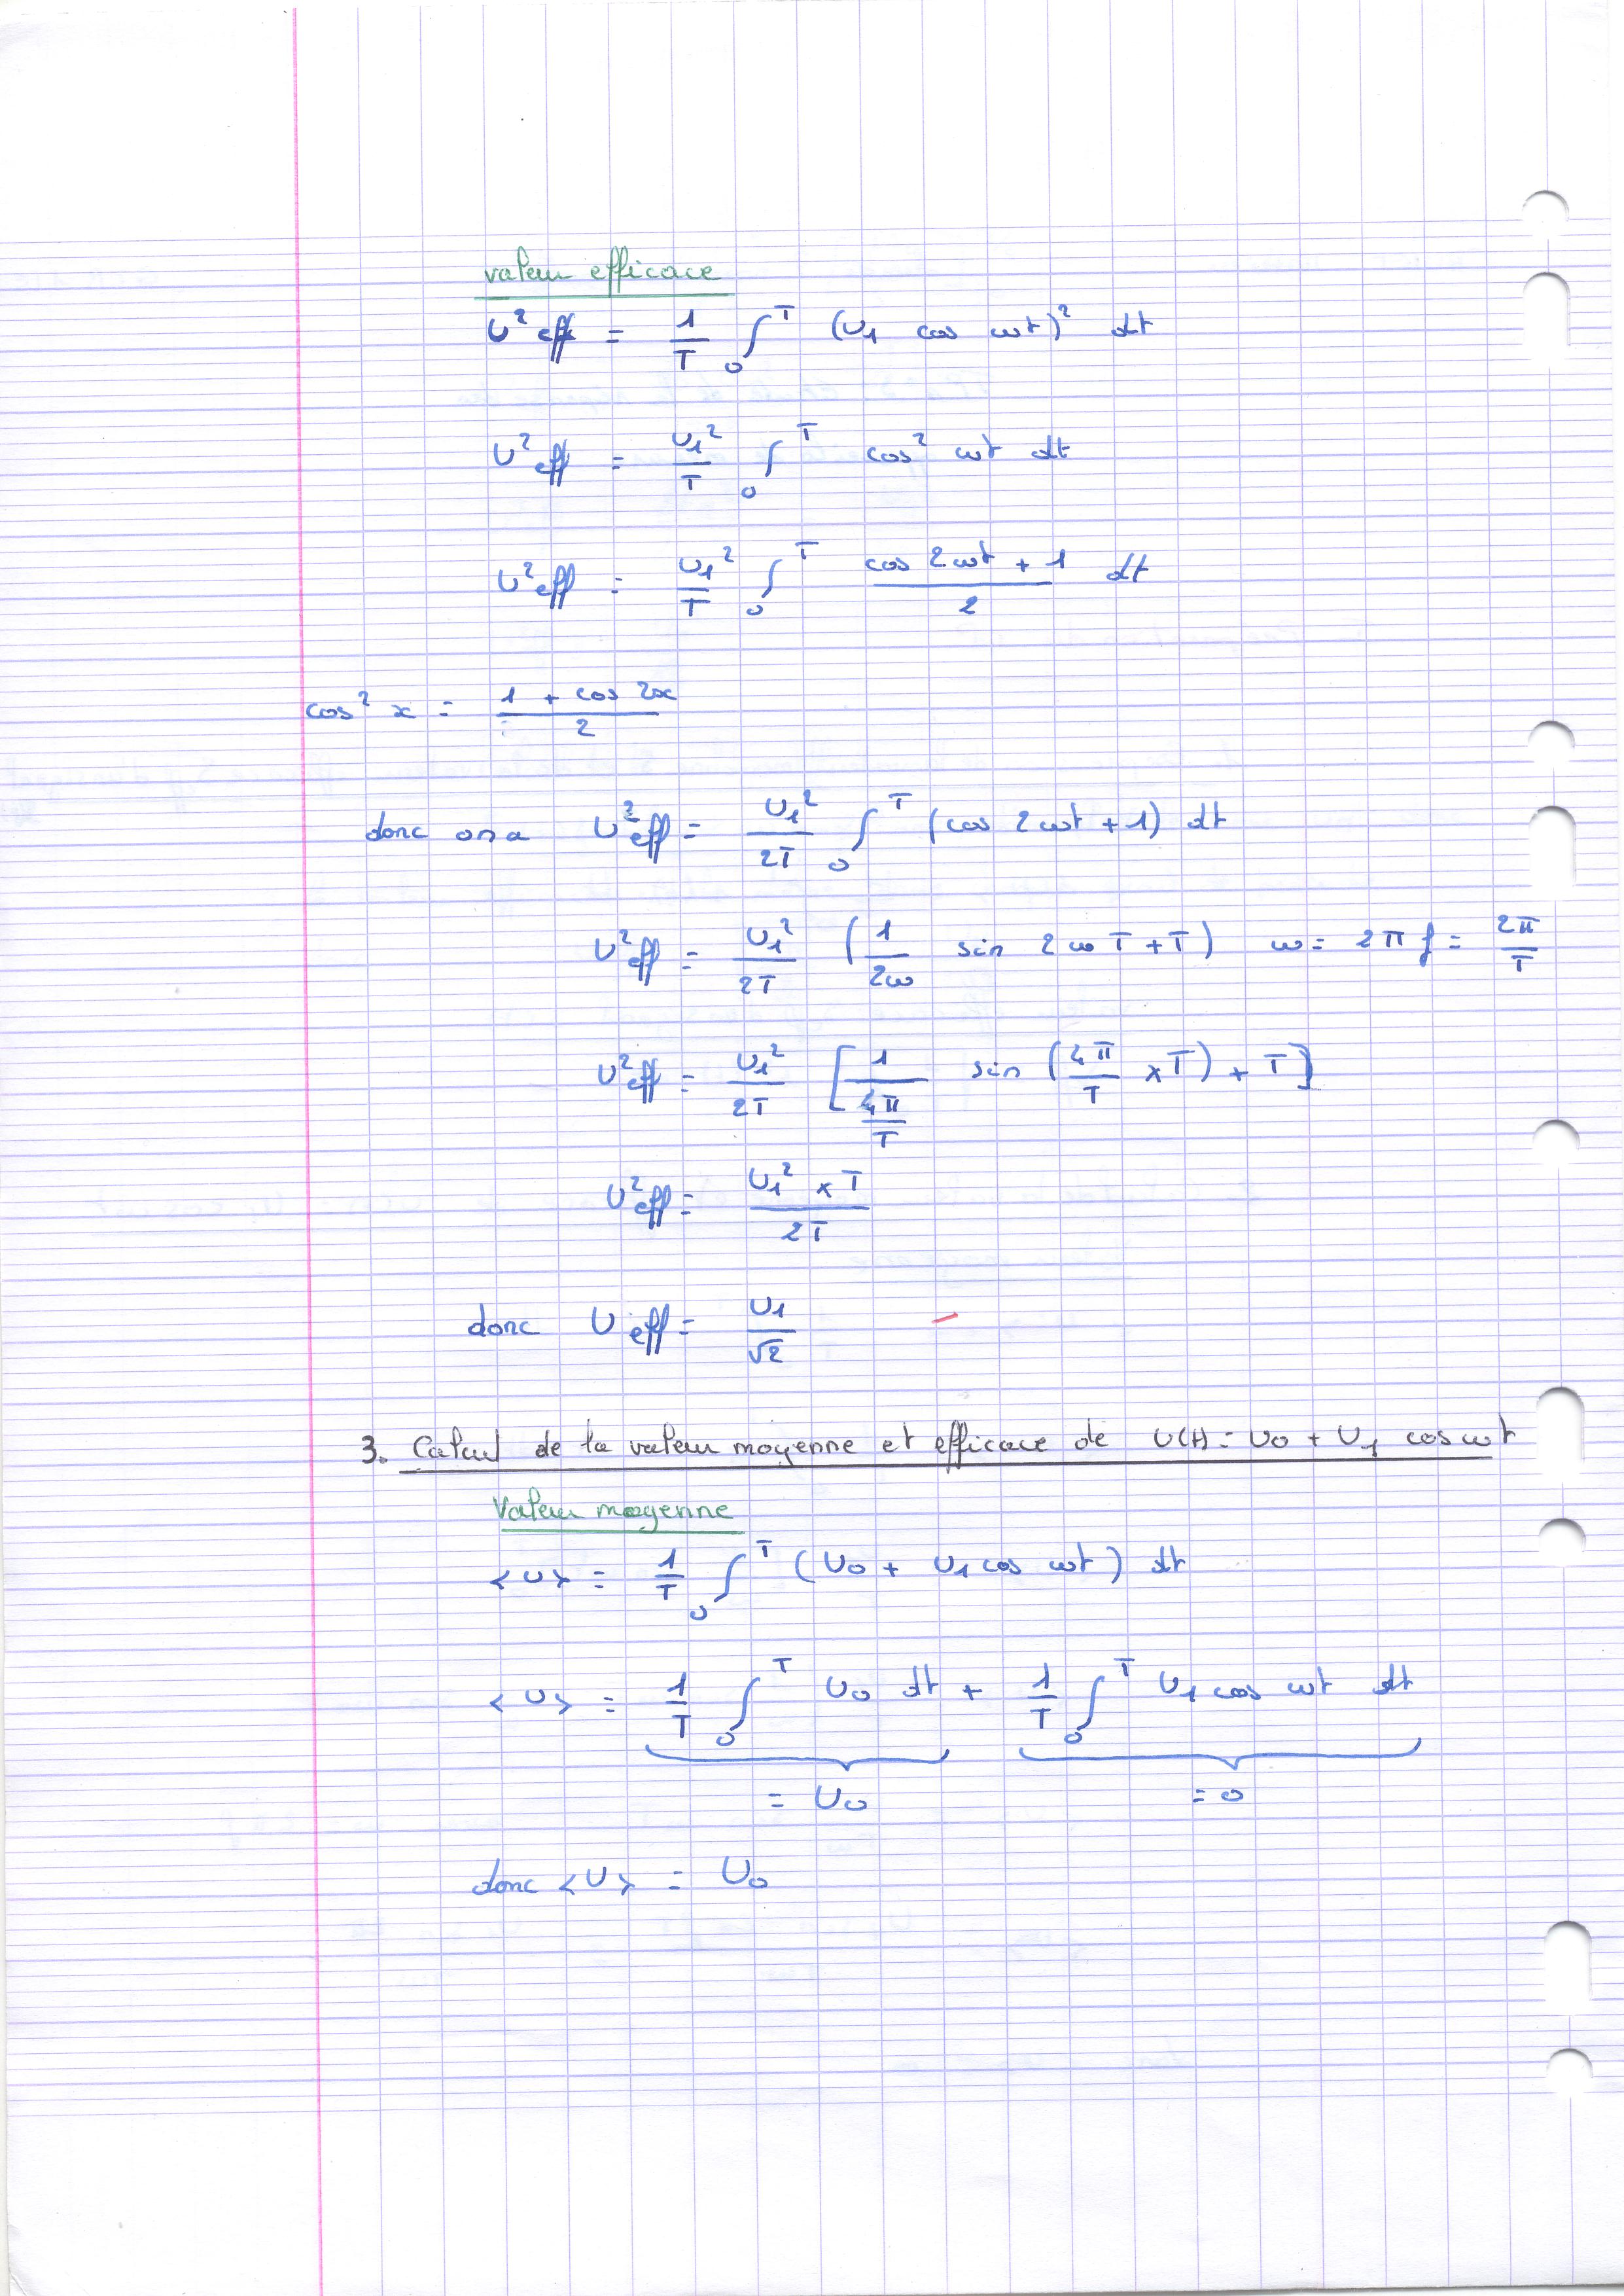 valeur efficace
U²eff = 1/T ∫₀ᵀ (U₁ cos ωt)² dt
U²eff = U₁²/T ∫₀ᵀ cos² ωt dt
U²eff = U₁²/T ∫₀ᵀ (cos 2ωt + 1)/2 dt
cos² x = (1 + cos 2x)/2
donc on a U²eff = U₁²/2T ∫₀ᵀ (cos 2ωt + 1) dt
U²eff = U₁²/2T (1/2ω sin 2ωT + T) ω = 2πf = 2π/T
U²eff = U₁²/2T [1/(4π/T) sin (4π/T × T) + T]
U²eff = U₁² × T/2T
donc Ueff = U₁/√2
3. Calcul de la valeur moyenne et efficace de U(t) = U0 + U₁ cos ωt
Valeur moyenne
<U> = 1/T ∫₀ᵀ (U0 + U₁ cos ωt) dt
<U> = 1/T ∫₀ᵀ U0 dt + 1/T ∫₀ᵀ U₁ cos ωt dt
= U0 = 0
donc <U> = U0